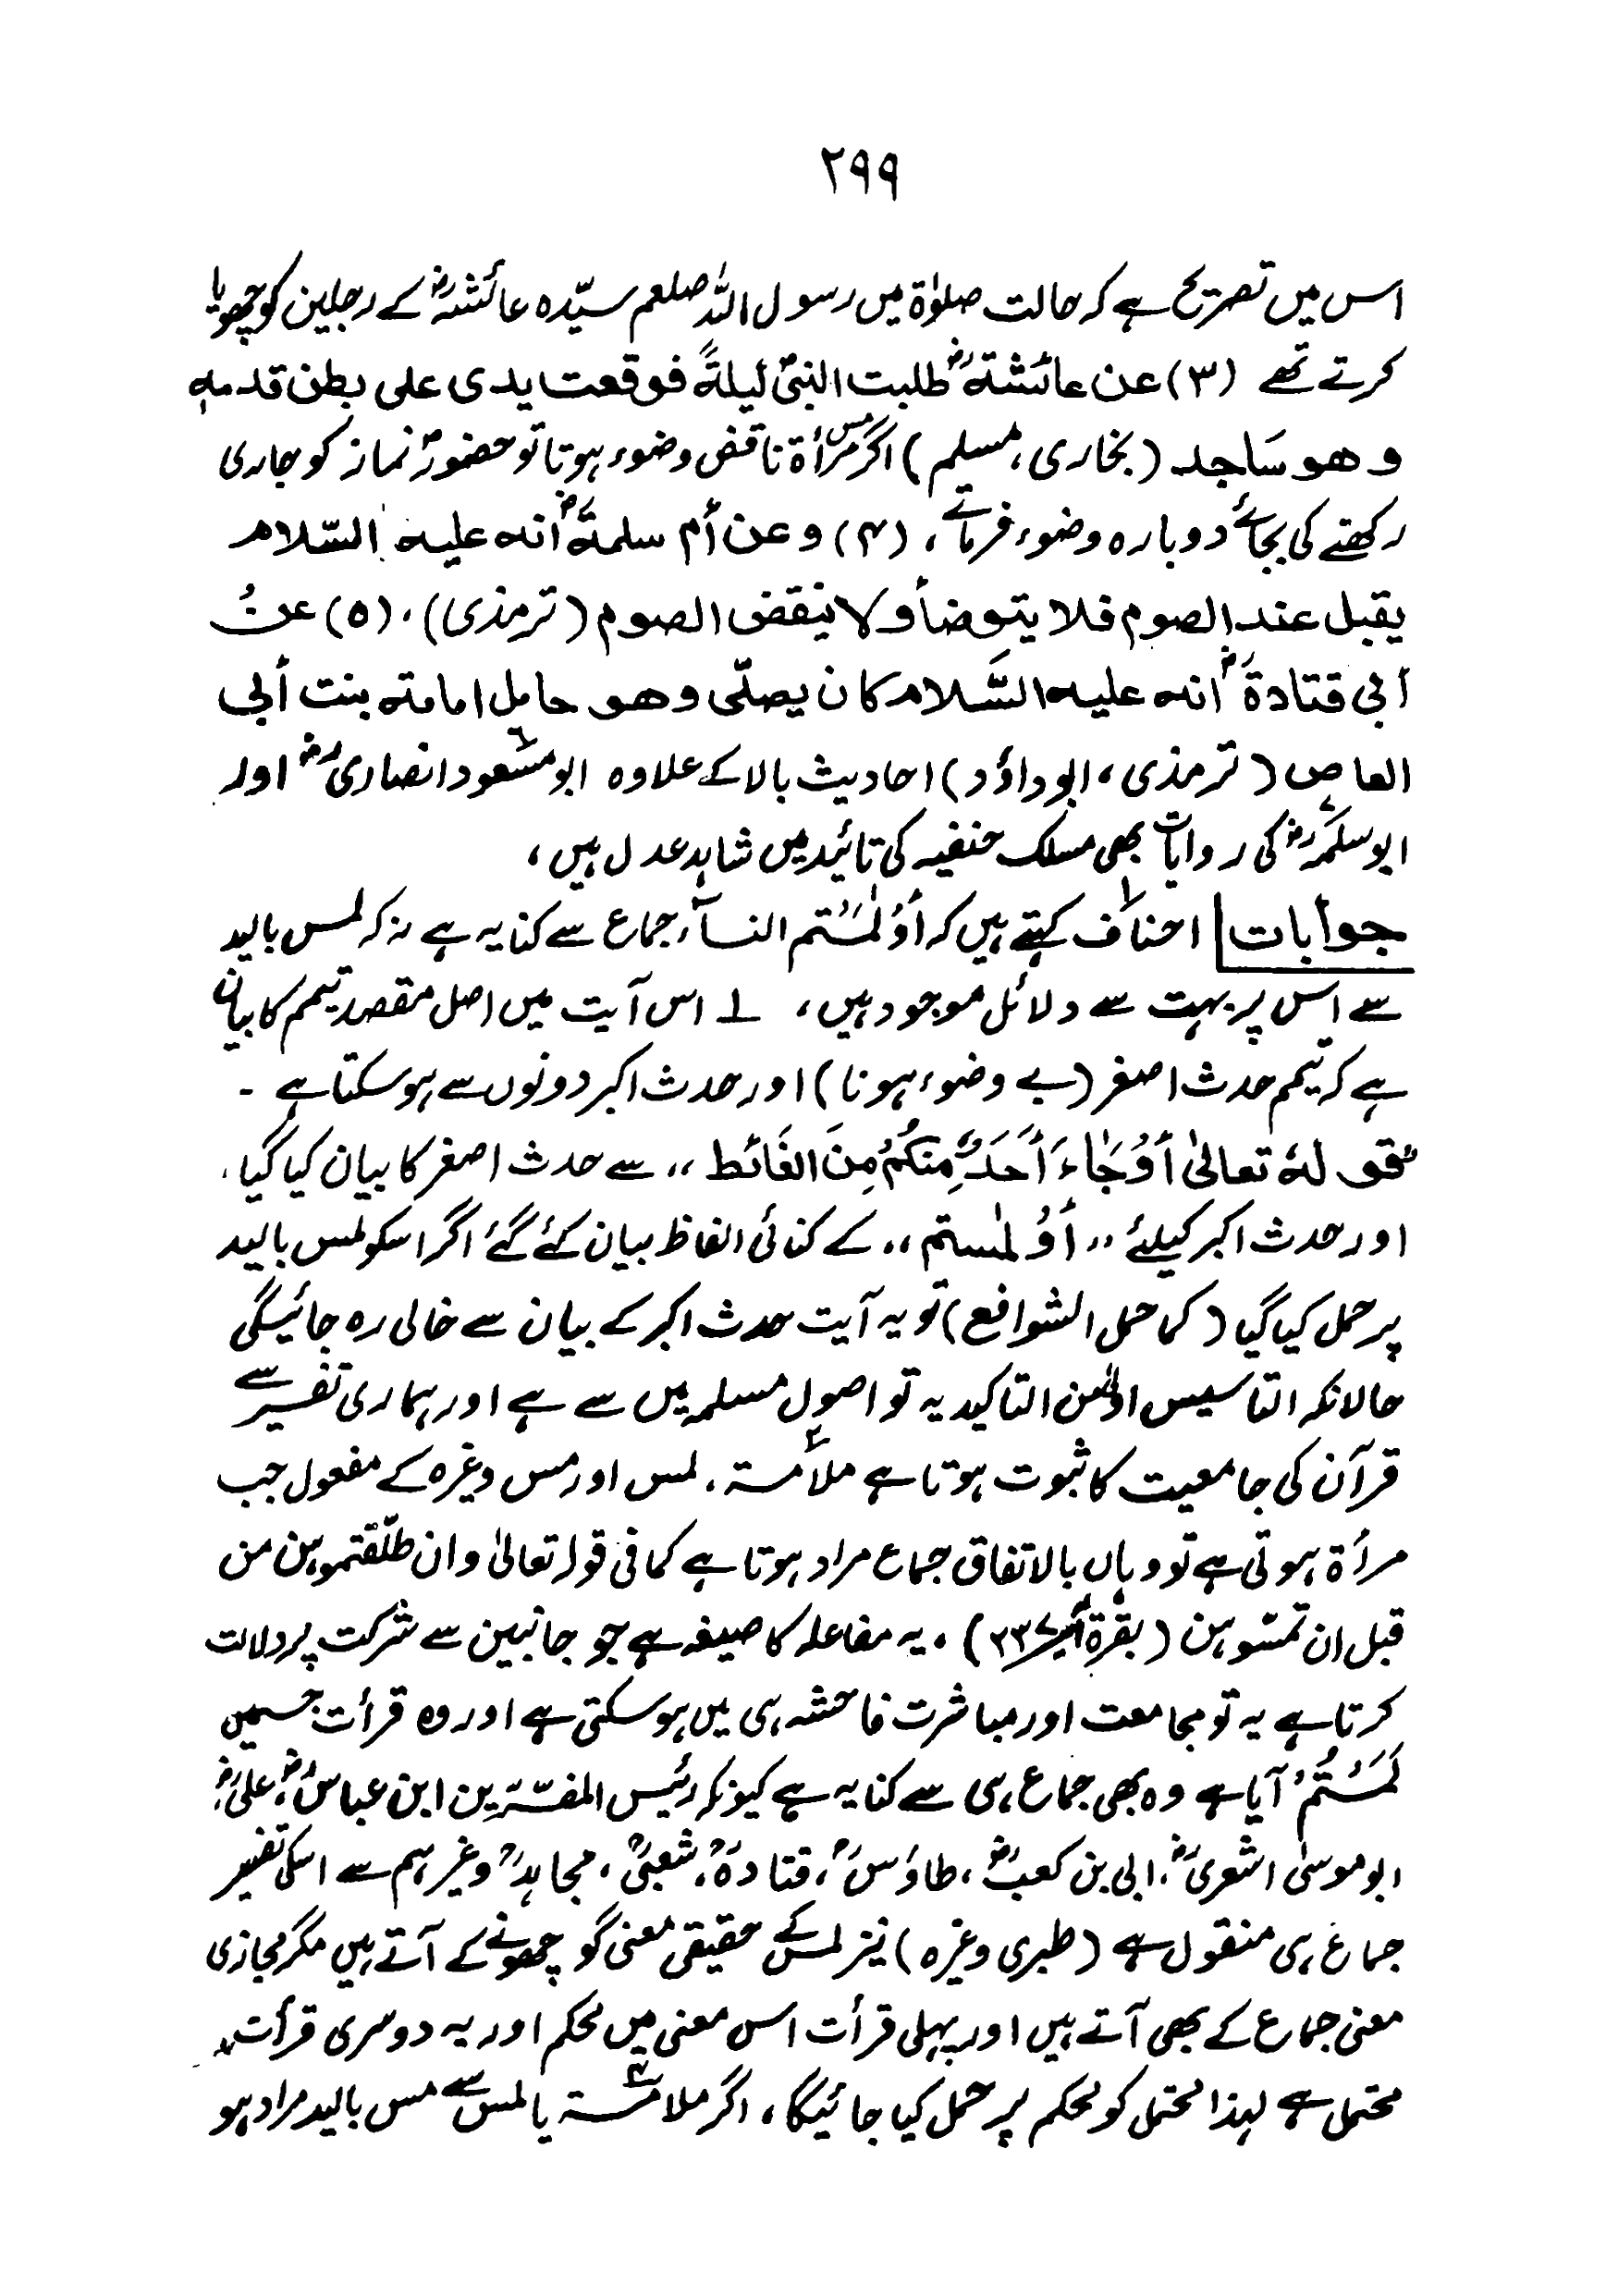 ۲۹۹
اس میں تصریح ہے کہ حالت صلوٰۃ میں رسول اللہ صلعم سیّدہ عائشہؓ کے رجلین کو چھویا
کرتے تھے (۳) عن عائشۃؓ طلبت النبیؐ لیلۃً فوقعت یدی علی بطن قدمہ
وھو سَاجد (بخاری، مسلم) اگر مس مرأۃ ناقض وضوء ہوتا تو حضورؐ نماز کو جاری
رکھنے کی بجائے دوبارہ وضوء فرماتے، (۴) وعن أم سلمۃؓ انہ علیہ السّلام
یقبل عند الصوم فلا یتوضأ ولا ینقض الصوم (ترمذی)، (۵) عن
أبی قتادۃؓ انہ علیہ السَّلام کان یصلّی وھو حامل امامۃ بنت أبی
العاص (ترمذی، ابوداؤد) احادیث بالا کے علاوہ ابو مسعود انصاریؓ اور
ابوسلمہؓ کی روایات بھی مسلک حنفیہ کی تائید میں شاہد عدل ہیں،
جوابات احناف کہتے ہیں کہ أوْ لٰمَسْتُم النسآء، جماع سے کنایہ ہے نہ کہ لمس بالید
سے اس پر بہت سے دلائل موجود ہیں، ؂۱ اس آیت میں اصل مقصد تیمم کا بیان
ہے کہ تیمم حدث اصغر (بے وضوء ہونا) اور حدث اکبر دونوں سے ہو سکتا ہے ۔
قولہٗ تعالیٰ أوْ جَاءَ أَحَدٌ مِّنكُمْ مِنَ الغَائط ،، سے حدث اصغر کا بیان کیا گیا،
اور حدث اکبر کیلئے ,, أوْ لٰمستم ،، کے کنائی الفاظ بیان کئے گئے اگر اسکو لمس بالید
پر حمل کیا گیا (کما حمل الشوافع) تو یہ آیت حدث اکبر کے بیان سے خالی رہ جائیگی
حالانکہ التاسیس اولیٰ من التاکید یہ تو اصول مسلمہ میں سے ہے اور ہماری تفسیر سے
قرآن کی جامعیت کا ثبوت ہوتا ہے ؂۲ ملامسۃ، لمس اور مس وغیرہ کے مفعول جب
مرأۃ ہوتی ہے تو وہاں بالاتفاق جماع مراد ہوتا ہے کما فی قولہ تعالیٰ وان طلّقتموہن من
قبل ان تمسّوہن (بقرۃ آیت ۲۳۷)، یہ مفاعلہ کا صیغہ ہے جو جانبین سے شرکت پر دلالت
کرتا ہے یہ تو مجامعت اور مباشرت فاحشہ ہی میں ہو سکتی ہے اور وہ قرأت جسمیں
لَمَسْتُمْ آیا ہے وہ بھی جماع ہی سے کنایہ ہے کیونکہ رئیس المفسّرین ابن عباسؓ، علیؓ،
ابو موسیٰ اشعریؓ، ابی بن کعبؓ، طاؤسؒ، قتادہؒ، شعبیؒ، مجاہدؒ وغیرہم سے اسکی تفسیر
جماع ہی منقول ہے (طبری وغیرہ) نیز لمس کے حقیقی معنی گو چھونے کے آتے ہیں مگر مجازی
معنی جماع کے بھی آتے ہیں اور پہلی قرأت اس معنی میں محکم اور یہ دوسری قرأت
محتمل ہے لہذا محتمل کو محکم پر حمل کیا جائیگا، اگر ملامسۃ یا لمس سے مس بالید مراد ہو